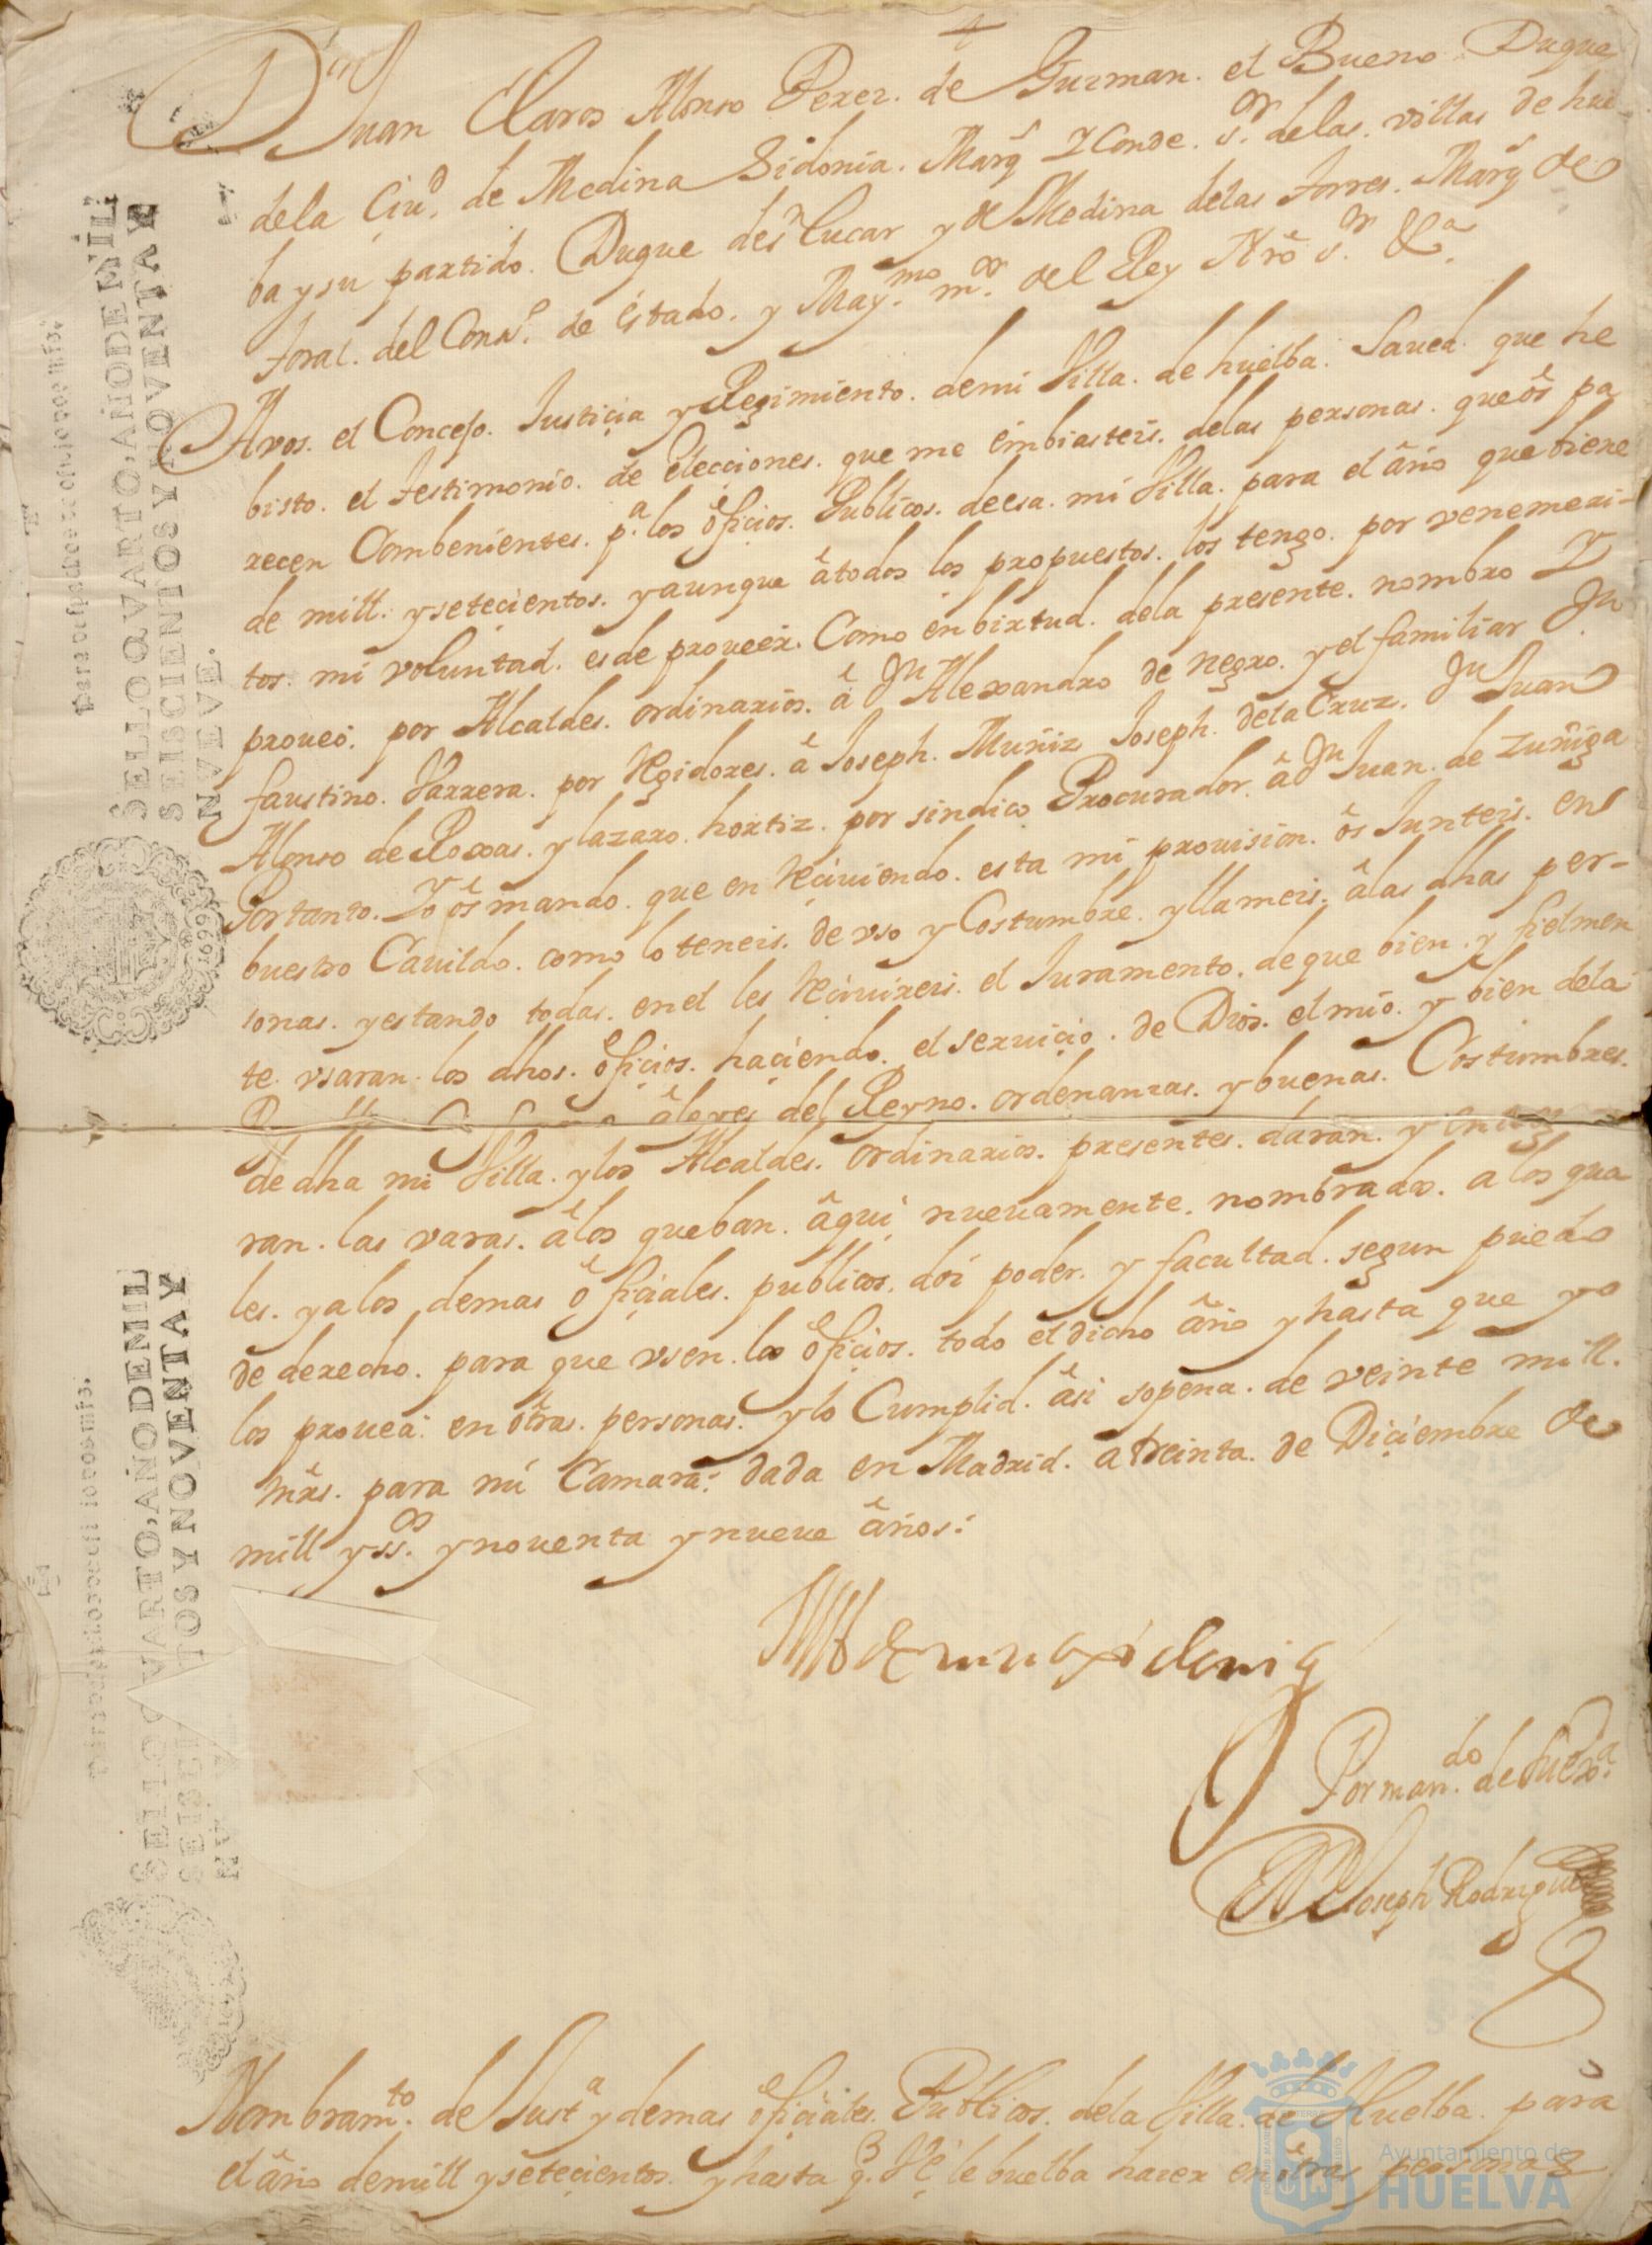 Dn Juan Claros Alonso Perez. de Guzman. el Bueno Duque
dela Ciud. de Medina Sidonia. Marqs Y Conde. sr. delas. villas de huel
ba y su partido. Duque de sn lucar y de Medina delas torres. Marqs de
toral. del Conso. de Estado. y Maymo. mor. del Rey Nro sr. &a.
Avos. el Concejo. Justicia y Regimiento. demi Villa. de huelba. Saved. que he
bisto. el testimonio. de elecciones. que me embiasteis. delas personas. que os pa
recen Combenientes. pa. los oficios. Publicos. deesa. mi Villa. para el año que biene
de mill. y setecientos. y aunque a todos los propuestos. los tengo. por venemeri-
tos. mi voluntad. es de proveer. Como en birtud. dela presente. nombro Y
proveo. por Alcaldes. ordinarios. a Dn Alexandro de negro. y el familiar Dn
faustino. Barrera. por Regidores. a Joseph. Muñiz Joseph. dela Cruz. Dn Juan
Alonso de Roxas. y lazaro. hortiz. por sindico Procurador. a Dn Juan. de Zuñiga
Portanto. Yo os mando. que en Reciviendo. esta mi provision. os Junteis. en
buestro Cavildo. como lo teneis. de vso y Costumbre. y llameis. a las dhas per-
sonas. y estando todas. en el les Recivireis. el Juramento. de que bien. y fielmen
te. vsaran. los dhos. oficios. haciendo. el servicio. de Dios. el mio. y bien dela
a leyes del Reyno. ordenanzas. y buenas. Costumbres.
de dha mi Villa. y los Alcaldes. ordinarios. presentes. daran. y entre
ran. las varas. a los que ban. aqui nuevamente. nombrados. a los qua
les. y a los demas oficiales. publicos. doi poder. y facultad. segun puedo
de derecho. para que vsen. los oficios. todo el dicho año y hasta que yo
los provea: en otras. personas: y lo Cumplid. asi sopena. de veinte mill.
mrs. para mi Camara: dada en Madrid. a treinta. de Diciembre de
mill y ssos. y noventa y nueve años:
Por mando. de su exa.
Joseph Rodriguez
Nombramto. de Justa y demas oficiales. Publicos. dela Villa. de Huelba. para
el año demill y setecientos. y hasta q. Ve. le buelba hacer en otras personas
SELLO QVARTO, AÑO DE MIL
SEISCIENTOS Y NOVENTA Y
NVEVE.
1699
SELLO QVARTO, AÑO DE MIL
SEISCIENTOS Y NOVENTA Y
Ayuntamiento de
HUELVA